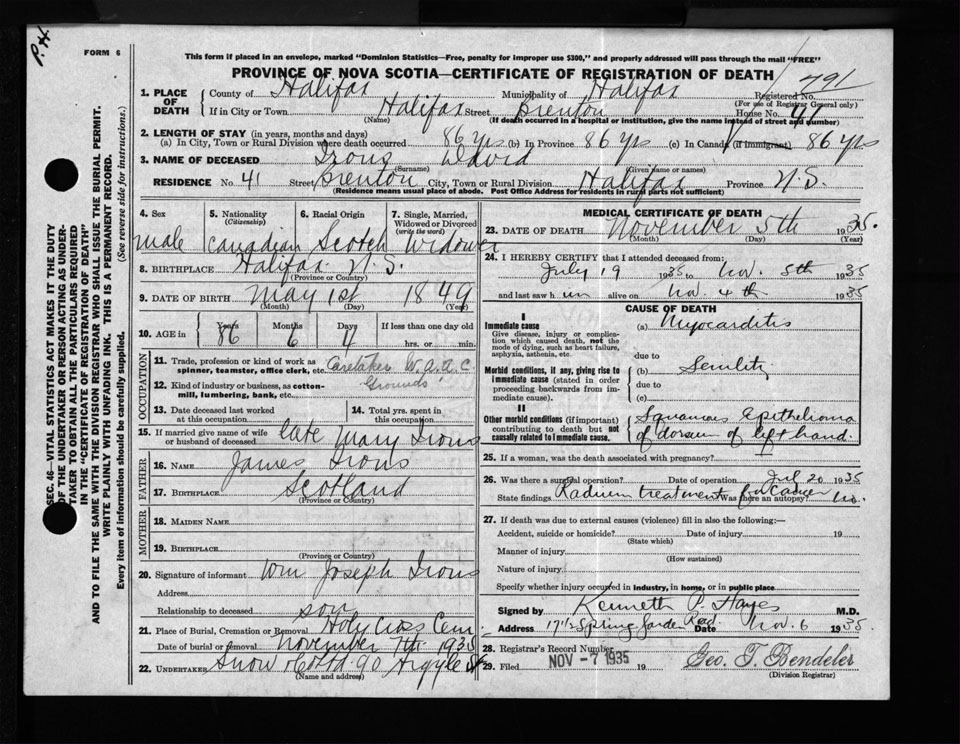 P.H.
FORM 6
This form if placed in an envelope, marked "Dominion Statistics—Free, penalty for improper use $300," and properly addressed will pass through the mail "FREE"
PROVINCE OF NOVA SCOTIA—CERTIFICATE OF REGISTRATION OF DEATH
1. PLACE OF DEATH County of Halifax Municipality of Halifax Registered No. 791
(For use of Registrar General only)
If in City or Town Halifax Street Brenton House No. 41
(Name) (If death occurred in a hospital or institution, give the name instead of street and number)
2. LENGTH OF STAY (in years, months and days)
(a) In City, Town or Rural Division where death occurred 86 yrs (b) In Province 86 yrs (c) In Canada (if immigrant) 86 yrs
3. NAME OF DECEASED Irons David
(Surname) (Given name or names)
RESIDENCE No. 41 Street Brenton City, Town or Rural Division Halifax Province N.S.
(Residence means usual place of abode. Post Office Address for residents in rural parts not sufficient)
4. Sex 5. Nationality (Citizenship) 6. Racial Origin 7. Single, Married, Widowed or Divorced (write the word)
male Canadian Scotch Widower
8. BIRTHPLACE Halifax N.S.
(Province or Country)
9. DATE OF BIRTH May 1st 1849
(Month) (Day) (Year)
10. AGE in Years Months Days If less than one day old
86 6 4 hrs. or min.
OCCUPATION
11. Trade, profession or kind of work as spinner, teamster, office clerk, etc. Caretaker W.A.A.C.
12. Kind of industry or business, as cotton-mill, lumbering, bank, etc. Grounds
13. Date deceased last worked at this occupation
14. Total yrs. spent in this occupation
15. If married give name of wife or husband of deceased late Mary Irons
FATHER
16. NAME James Irons
17. BIRTHPLACE Scotland
(Province or Country)
MOTHER
18. MAIDEN NAME
19. BIRTHPLACE
(Province or Country)
20. Signature of informant Wm Joseph Irons
Address
Relationship to deceased son
21. Place of Burial, Cremation or Removal Holy Cross Cem.
Date of burial or removal November 7th 1935
22. UNDERTAKER Snow & Co Ltd 90 Argyle St
(Name and address)
MEDICAL CERTIFICATE OF DEATH
23. DATE OF DEATH November 5th 1935.
(Month) (Day) (Year)
24. I HEREBY CERTIFY that I attended deceased from:
July 19 1935 to Nov. 5th 1935
and last saw him alive on Nov. 4th 1935
CAUSE OF DEATH
I
Immediate cause (a) Myocarditis
Give disease, injury or complication which caused death, not the mode of dying, such as heart failure, asphyxia, asthenia, etc.
due to
Morbid conditions, if any, giving rise to immediate cause (stated in order proceeding backwards from immediate cause).
(b) Senility
due to
(c)
II
Other morbid conditions (if important) contributing to death but not causally related to immediate cause.
Squamous Epithelioma
of dorsum of left hand.
25. If a woman, was the death associated with pregnancy?
26. Was there a surgical operation? Date of operation Jul 20 1935
State findings Radium treatment for Cancer Was there an autopsy? No.
27. If death was due to external causes (violence) fill in also the following:—
Accident, suicide or homicide? Date of injury 19
(State which)
Manner of injury
(How sustained)
Nature of injury
Specify whether injury occurred in industry, in home, or in public place
Signed by Kenneth P. Hayes M.D.
Address 17 1/2 Spring Garden Road Date Nov. 6 1935.
28. Registrar's Record Number
29. Filed NOV -7 1935 19 Geo. T. Bendeler
(Division Registrar)
SEC. 46—VITAL STATISTICS ACT MAKES IT THE DUTY
OF THE UNDERTAKER OR PERSON ACTING AS UNDER-
TAKER TO OBTAIN ALL THE PARTICULARS REQUIRED
IN THE "CERTIFICATE OF REGISTRATION OF DEATH"
AND TO FILE THE SAME WITH THE DIVISION REGISTRAR WHO SHALL ISSUE THE BURIAL PERMIT.
WRITE PLAINLY WITH UNFADING INK. THIS IS A PERMANENT RECORD.
Every item of information should be carefully supplied. (See reverse side for instructions.)